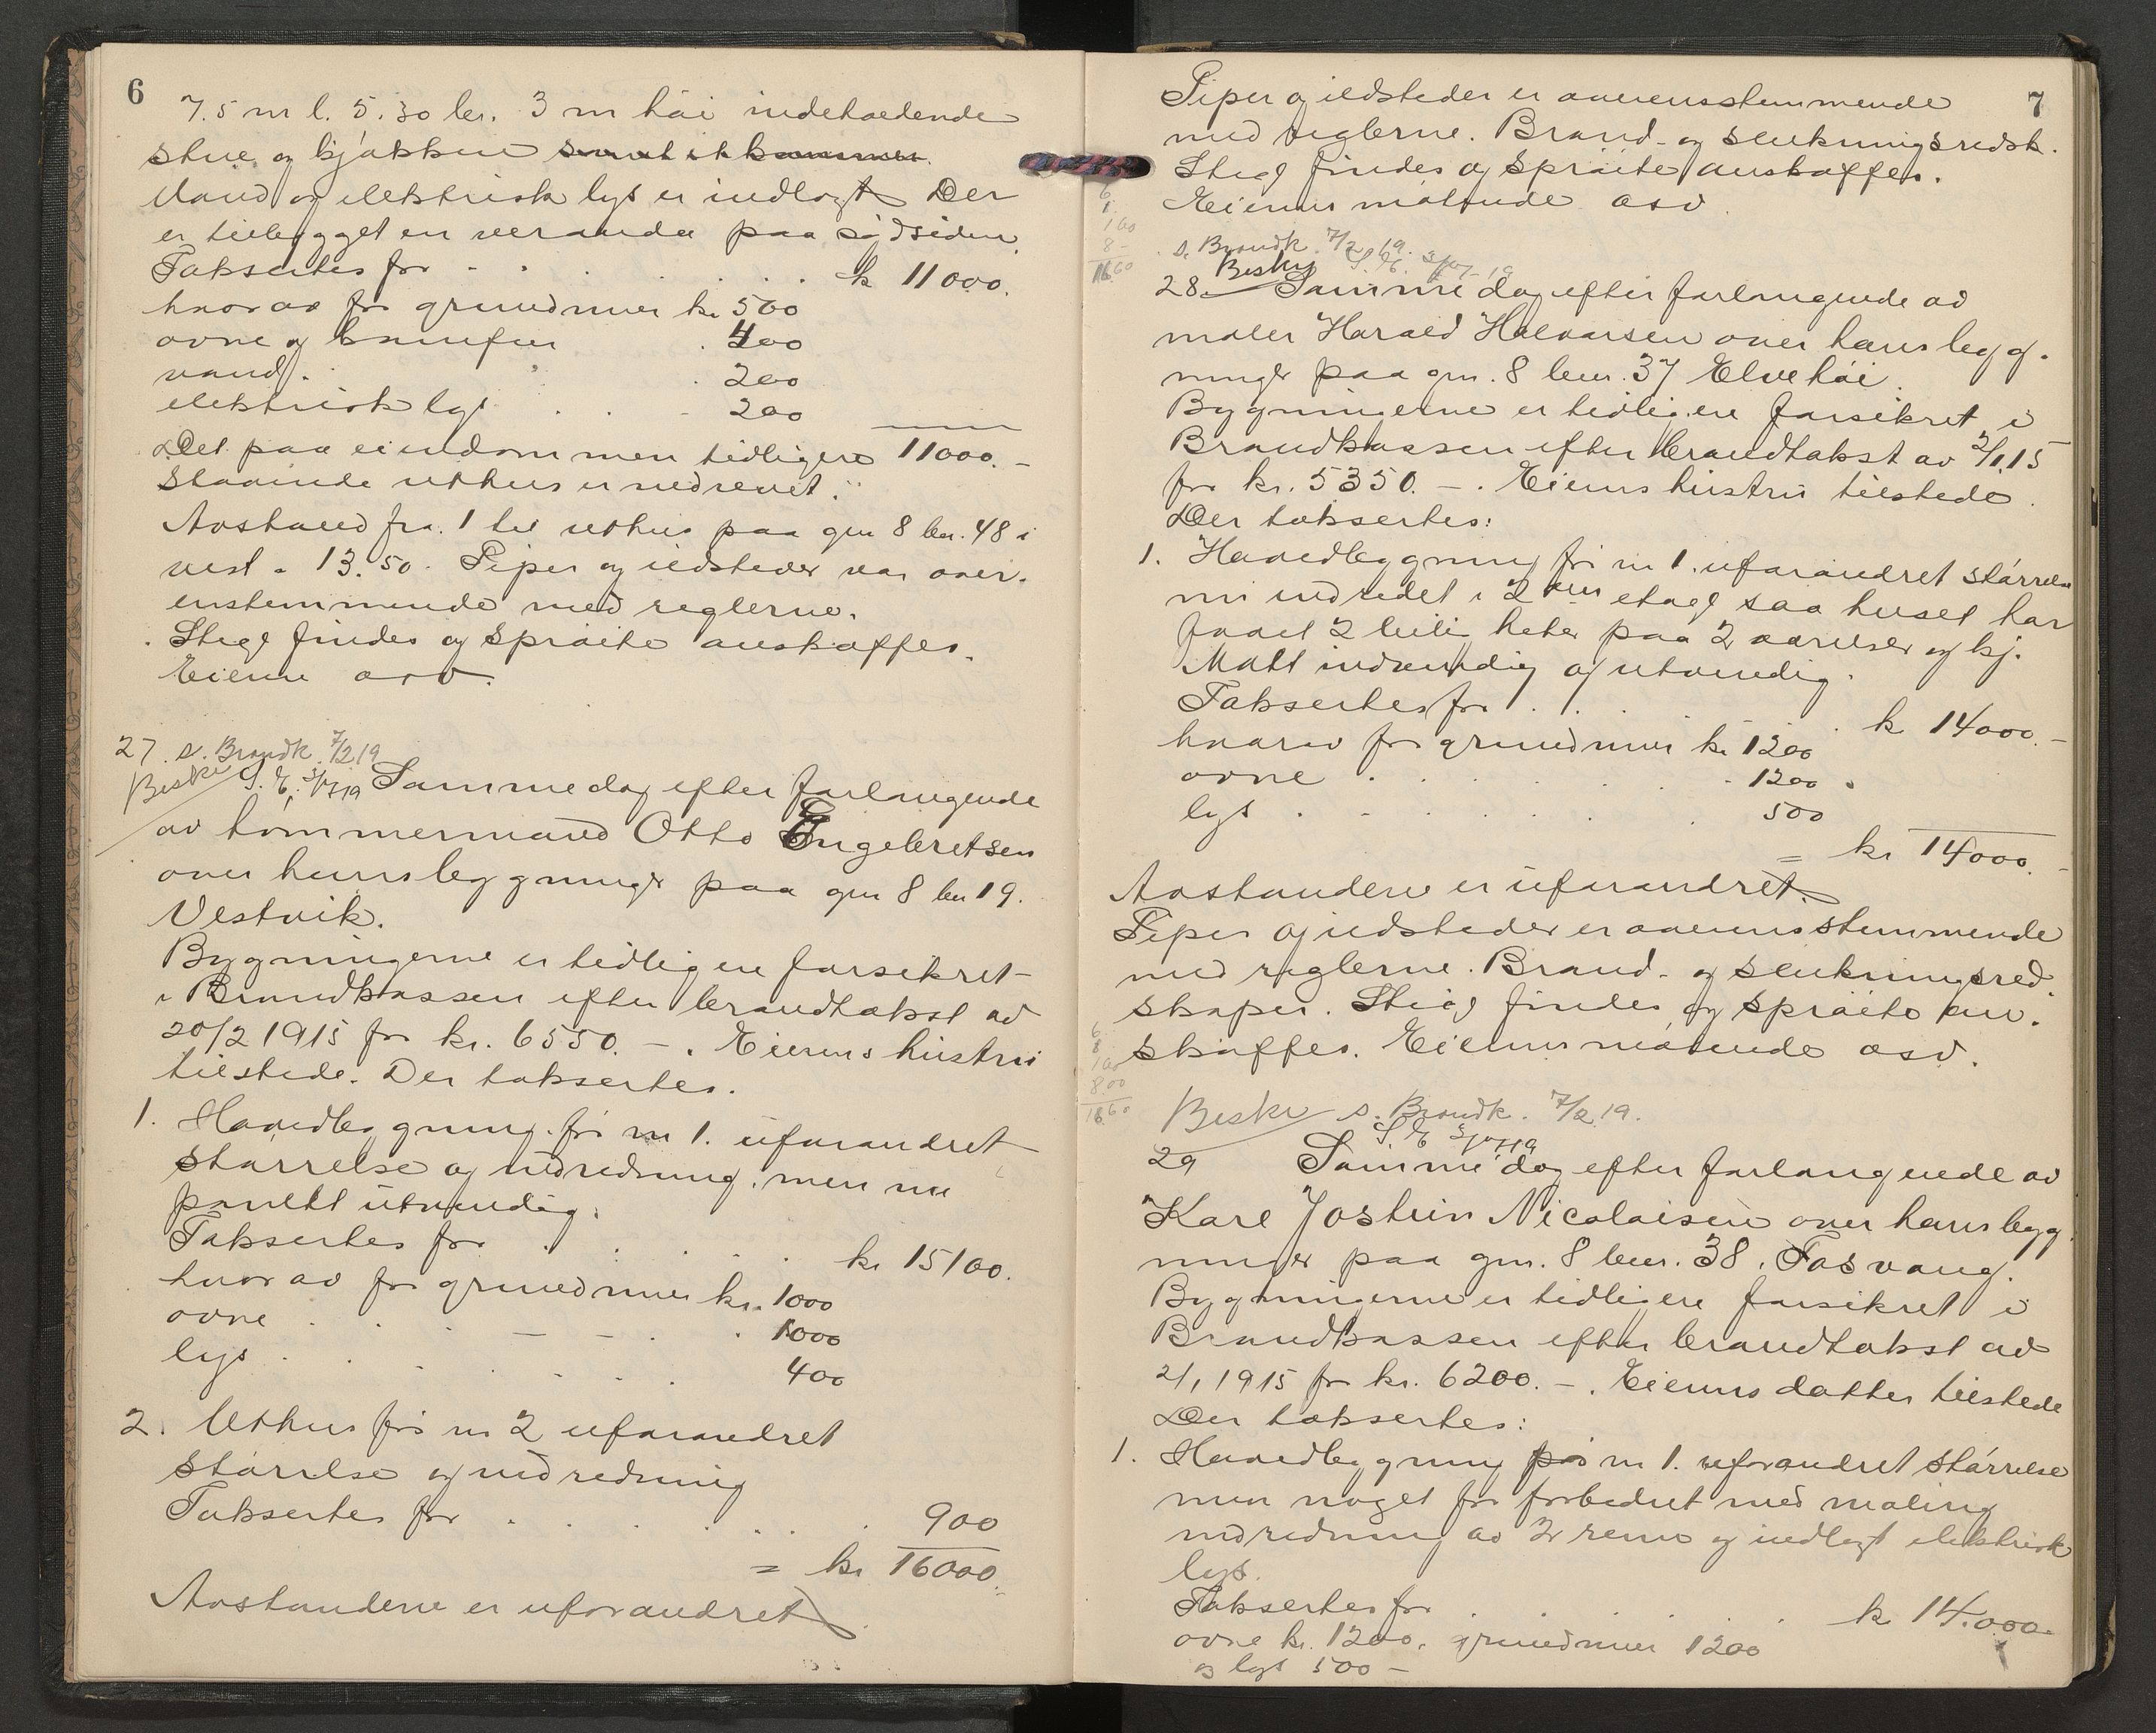 6
7.5 m l. 5.30 br. 3 m høi indeholdende
stue og kjøkken samt et kammer.
Vand og elektrisk lys er indlagt Der
er tilbygget en veranda paa sydsiden.
Taksertes for . . . . . . k 11000.
hvorav for grundmur kr 500
ovne og komfur . 400
vand . . 200
elektrisk lys . . - 200
Det paa eiendommen tidligere 11000.-
staaende uthus er nedrevet.
Avstand fra 1 til uthus paa gn 8 bn. 48 i
vest = 13.50. Piper og ildsteder var over-
enstemmende med reglerne.
Stige findes og sprøite anskaffes.
Eieren osv.
27 s. Brandk. 7/2 19
Beskr S. E. 3/7 19 Samme dag efter forlangende
av tømmermand Otto Engebretsen
over hans bygninger paa gn 8 bn 19.
Vestvik.
Bygningerne er tidligere forsikret
i Brandkassen efter brandtakst av
20/2 1915 for kr. 6550.-. Eierens hustru
tilstede. Der taksertes.
1. Hovedbygning før m 1. uforandret
størrelse og indredning, men nu
panelt utvendig.
Taksertes for . . . . . kr 15100.
hvorav for grundmur kr. 1000
ovne . . . - - . . 1000
lys . . . . - . . 400
2. Uthus før m 2 uforandret
størrelse og indredning
Taksertes for . . . . . . 900
= kr 16000.
Avstandene er uforandret
7
Piper og ildsteder er overensstemmende
med reglerne. Brand- og slukningsredsk.
Stige findes og sprøite anskaffes.
Eieren møtende osv.
6
1
160
8-
1660
s. Brandk. 7/2 19.
Beskr S. E. 3/7 19
28. Samme dag efter forlangende av
maler Harald Halvorsen over hans byg-
ninger paa gn. 8 bn. 37 Elvehøi.
Bygningerne er tidligere forsikret i
Brandkassen efter brandtakst av 2/1 15
for kr. 5350.-. Eierens hustru tilstede.
Der taksertes:
1. Hovedbygning før m 1. uforandret størrelse
nu indredet i 2den etage saa huset har
faaet 2 leiligheter paa 2 værelser og kj.
Malt indvendig og utvendig.
Taksertes for . . . . k 14000.-
hvorav for grundmur kr 1200
ovne . . . . . 1200.
lys . - . . . . 500
= kr 14000.-
Avstandene er uforandret.
Piper og ildsteder er overensstemmende
med reglerne. Brand- og slukningsred-
skaper. Stige findes og sprøite an-
skaffes. Eieren møtende osv.
6
8
100
8.00
1660
Beskr s. Brandk. 7/2 19.
S. E 3/7 19
29 Samme dag efter forlangende av
Karl Jostein Nicolaisen over hans byg-
ninger paa gn. 8 bn. 38. Fosvang.
Bygningerne er tidligere forsikret i
Brandkassen efter brandtakst av
2/1 1915 for kr. 6200.-. Eierens datter tilstede
Der taksertes:
1. Hovedbygning før m 1. uforandret størrelse
men noget for forbedret med maling
indredning av 2 rum og indlagt elektrisk
lys.
Taksertes for . . . . . k 14.000.
ovne kr. 1200, grundmur 1200
og lys 500-